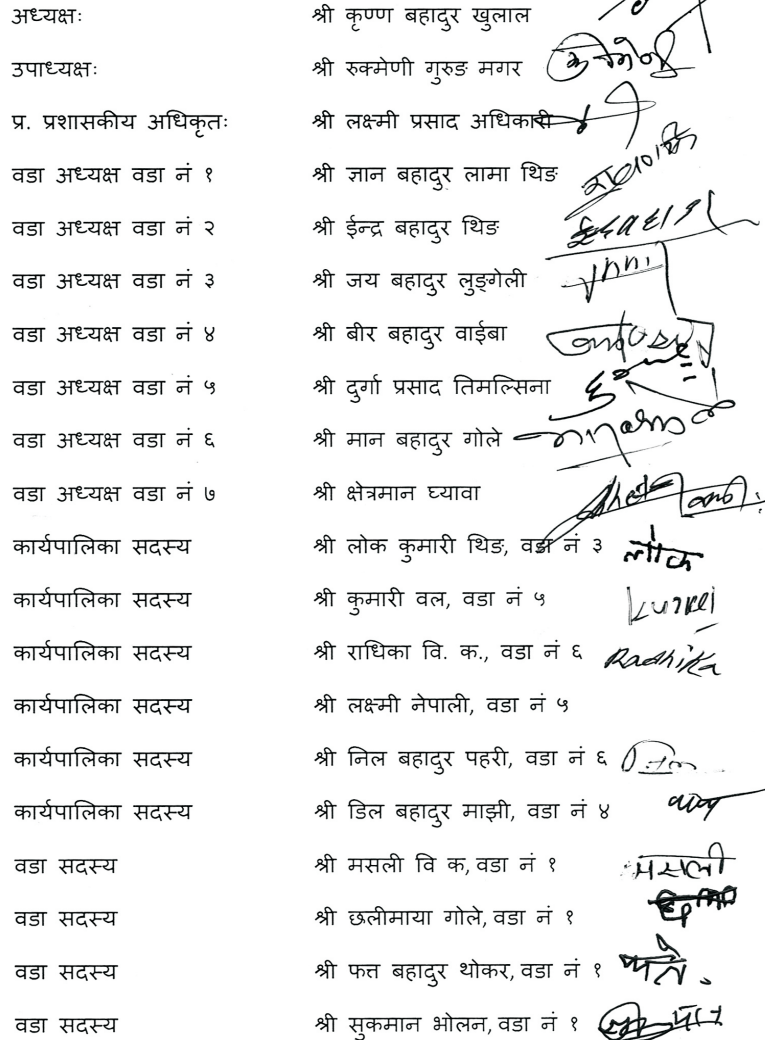 अध्यक्षः श्री कृण्ण बहादुर खुलाल
उपाध्यक्षः श्री रुक्मेणी गुरुङ मगर
प्र. प्रशासकीय अधिकृतः श्री लक्ष्मी प्रसाद अधिकारी
वडा अध्यक्ष वडा नं १ श्री ज्ञान बहादुर लामा थिङ
वडा अध्यक्ष वडा नं २ श्री ईन्द्र बहादुर थिङ
वडा अध्यक्ष वडा नं ३ श्री जय बहादुर लुङ्गेली
वडा अध्यक्ष वडा नं ४ श्री बीर बहादुर वाईबा
वडा अध्यक्ष वडा नं ५ श्री दुर्गा प्रसाद तिमल्सिना
वडा अध्यक्ष वडा नं ६ श्री मान बहादुर गोले
वडा अध्यक्ष वडा नं ७ श्री क्षेत्रमान घ्यावा
कार्यपालिका सदस्य श्री लोक कुमारी थिङ, वडा नं ३ लोक
कार्यपालिका सदस्य श्री कुमारी वल, वडा नं ५
कार्यपालिका सदस्य श्री राधिका वि. क., वडा नं ६ Radhika
कार्यपालिका सदस्य श्री लक्ष्मी नेपाली, वडा नं ५
कार्यपालिका सदस्य श्री निल बहादुर पहरी, वडा नं ६
कार्यपालिका सदस्य श्री डिल बहादुर माझी, वडा नं ४
वडा सदस्य श्री मसली वि क, वडा नं १ मसली
वडा सदस्य श्री छलीमाया गोले, वडा नं १
वडा सदस्य श्री फत्त बहादुर थोकर, वडा नं १
वडा सदस्य श्री सुकमान भोलन, वडा नं १